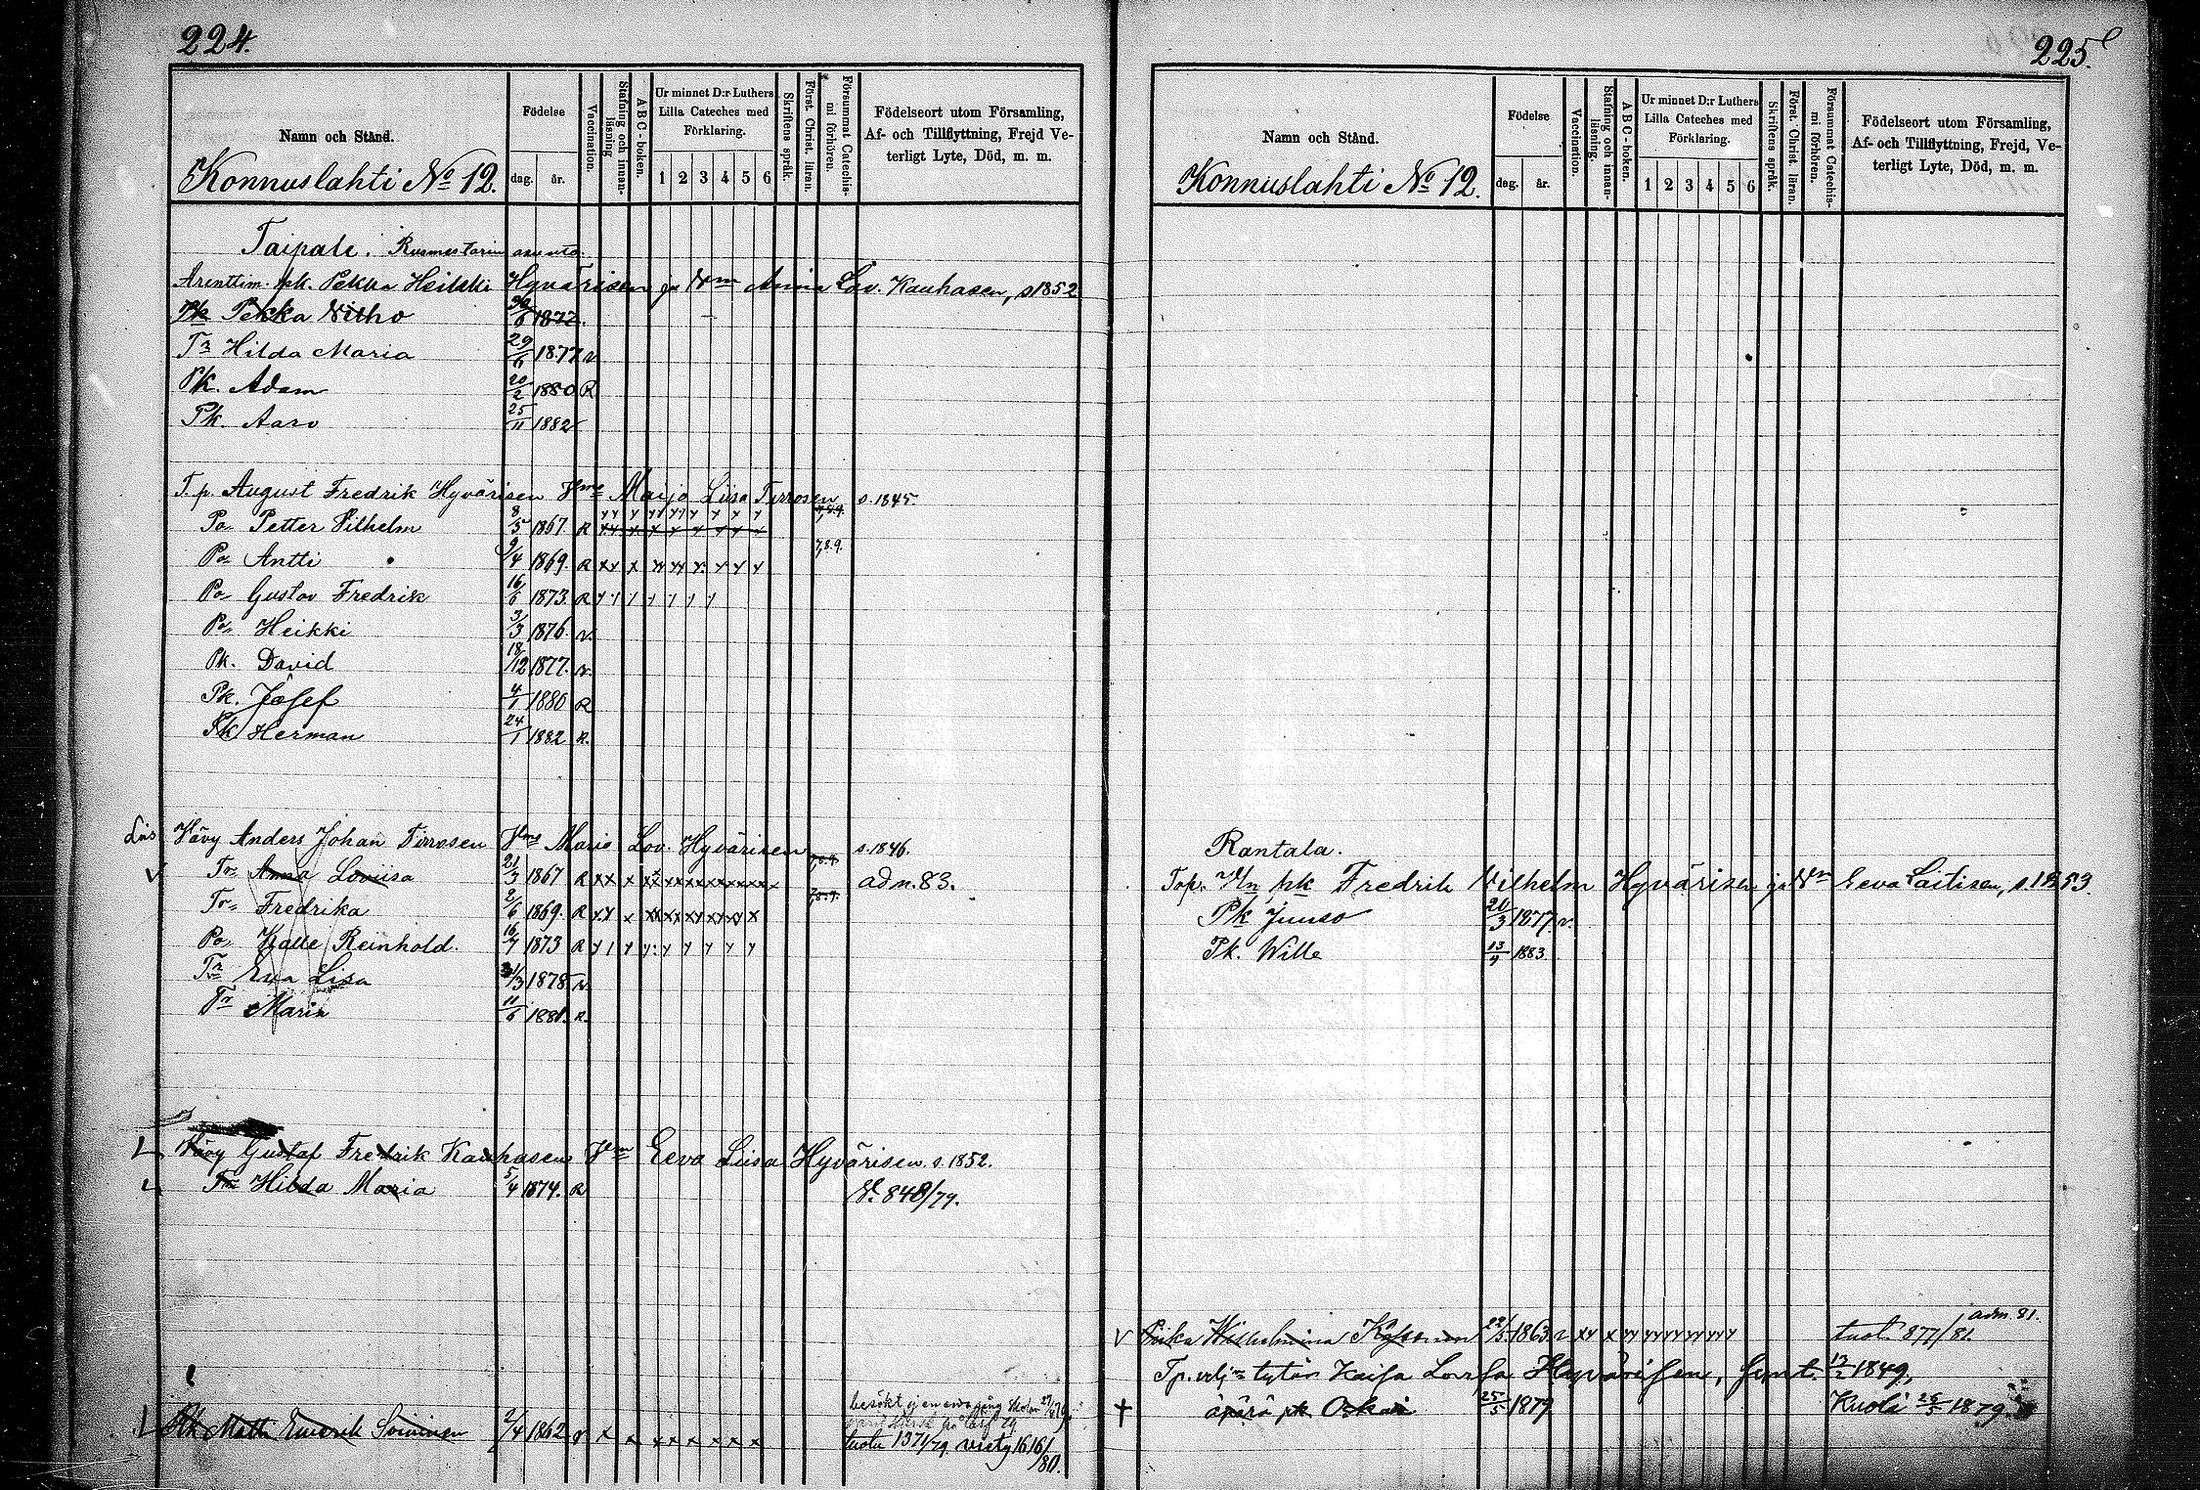 224.
Namn och Stånd.
Födelse
dag. år.
Vaccination.
Stafning och innan-läsning
ABC-boken.
Ur minnet D:r Luthers Lilla Cateches med Förklaring.
1 2 3 4 5 6
Skriftens språk.
Först. Christ. läran.
Försummat Catechis-mi förhören.
Födelseort utom Församling,
Af- och Tillflyttning, Frejd Ve-
terligt Lyte, Död, m. m.
Konnuslahti No 12.
Taipale. asunto.
pk. Pekka Heikki Hyvärisen ja Vm Anna Lov. Kauhasen, s 1852
Pk Pekka Wilho 1872.
Tr Hilda Maria 29/6 1877 v.
Pk. Adam 20/2 1880 R
Pk. Aaro 25/11 1882
T.p. August Fredrik Hyvärisen Vmo Maija Liisa Tirrosen s. 1845.
Po Petter Vilhelm 8/5 1867. R
Po Antti 9/4 1869. R 7,8.9.
Po Gustav Fredrik 16/6 1873. R
Po Heikki 3/3 1876. v.
Pk. David 18/12 1877. v.
Pk. Josef 4/1 1880 R
Pk Herman 24/1 1882 R.
Vävy Anders Johan Tirrosen Vmo Maria Lov. Hyvärisen s. 1846.
Tr Anna Loviisa 21/3 1867 R adm. 83.
Tr Fredrika 2/6 1869. R
Po Kalle Reinhold. 16/7 1873 R
Tr Eva Lisa 1878 v.
Tr Maria 11/6 1881. R.
Vävy Gustaf Fredrik Kauhasen Vm Eeva Liisa Hyvärisen s. 1852.
Tr Hilda Maria 5/4 1874. R V. 848/79.
Pk Matti Soininen 2/4 1862
besökt ej en enda gång
tuotu 1371/79. viety 1616/80.
225.
Namn och Stånd.
Födelse
dag. år.
Vaccination.
Stafning och innan-läsning.
ABC-boken.
Ur minnet D:r Luthers Lilla Cateches med Förklaring.
1 2 3 4 5 6
Skriftens språk.
Först. Christ läran.
Försummat Catechis-mi förhören.
Födelseort utom Församling,
Af- och Tillflyttning, Frejd, Ve-
terligt Lyte, Död, m. m.
Konnuslahti No 12.
Rantala.
pk Fredrik Vilhelm Hyvärisen ja Vm Eeva Laitisen, s. 1853.
Pk Juuso 1877 v.
Pk. Wille 1883
adm. 81.
Wilhelmina 1863. tuoti 877/81.
tytär Kaisa Lovisa Hyvärisen, synt. 1849.
† äpärä pk Oskar 25/5 1879 Kuoli 1879.